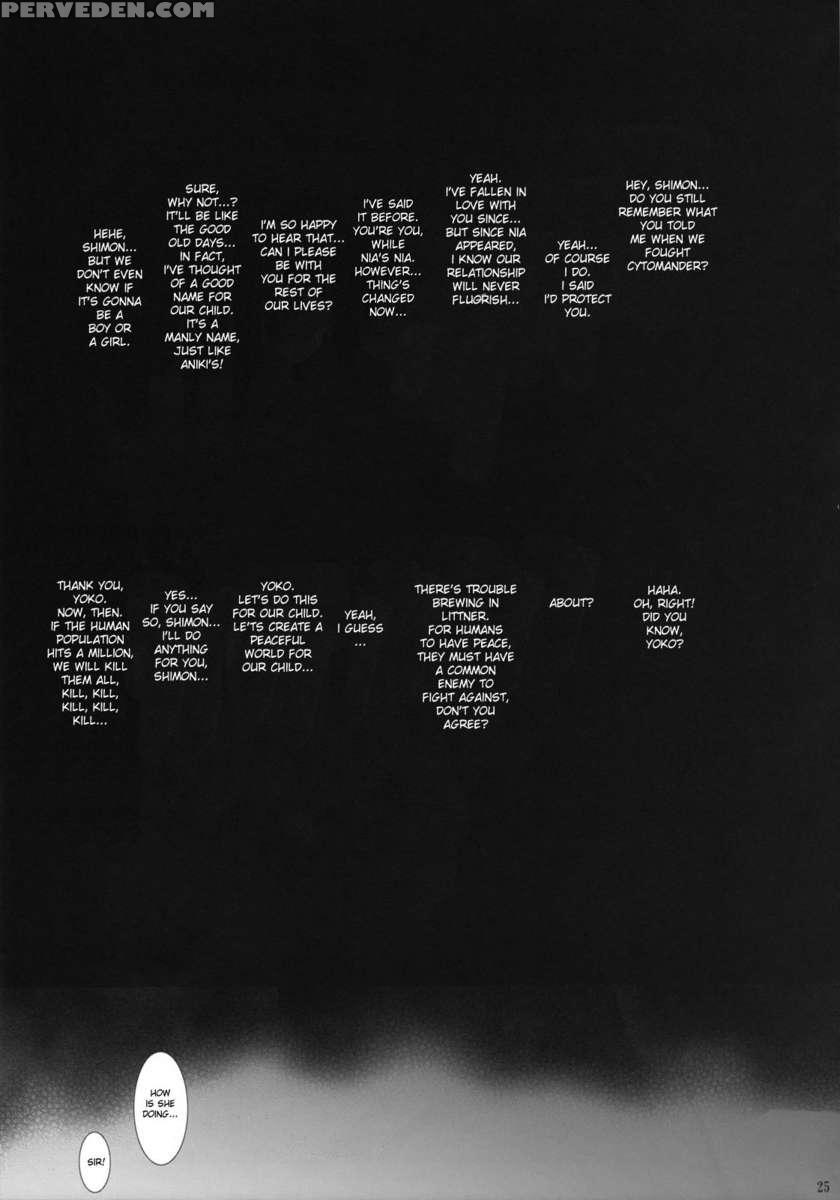 PERVEDEN.COM
HEY, SHIMON...
DO YOU STILL
REMEMBER WHAT
YOU TOLD
ME WHEN WE
FOUGHT
CYTOMANDER?
YEAH...
OF COURSE
I DO.
I SAID
I'D PROTECT
YOU.
YEAH.
I'VE FALLEN IN
LOVE WITH
YOU SINCE...
BUT SINCE NIA
APPEARED,
I KNOW OUR
RELATIONSHIP
WILL NEVER
FLUGRISH...
I'VE SAID
IT BEFORE.
YOU'RE YOU,
WHILE
NIA'S NIA.
HOWEVER...
THING'S
CHANGED
NOW...
I'M SO HAPPY
TO HEAR THAT...
CAN I PLEASE
BE WITH
YOU FOR THE
REST OF
OUR LIVES?
SURE,
WHY NOT...?
IT'LL BE LIKE
THE GOOD
OLD DAYS...
IN FACT,
I'VE THOUGHT
OF A GOOD
NAME FOR
OUR CHILD.
IT'S A
MANLY NAME,
JUST LIKE
ANIKI'S!
HEHE,
SHIMON...
BUT WE
DON'T EVEN
KNOW IF
IT'S GONNA
BE A
BOY OR
A GIRL.
HAHA.
OH, RIGHT!
DID YOU
KNOW,
YOKO?
ABOUT?
THERE'S TROUBLE
BREWING IN
LITTNER.
FOR HUMANS
TO HAVE PEACE,
THEY MUST HAVE
A COMMON
ENEMY TO
FIGHT AGAINST,
DON'T YOU
AGREE?
YEAH,
I GUESS
...
YOKO.
LET'S DO THIS
FOR OUR CHILD.
LE'TS CREATE A
PEACEFUL
WORLD FOR
OUR CHILD...
YES...
IF YOU SAY
SO, SHIMON...
I'LL DO
ANYTHING
FOR YOU,
SHIMON...
THANK YOU,
YOKO.
NOW, THEN.
IF THE HUMAN
POPULATION
HITS A MILLION,
WE WILL KILL
THEM ALL,
KILL, KILL,
KILL, KILL,
KILL...
HOW
IS SHE
DOING...
SIR!
25